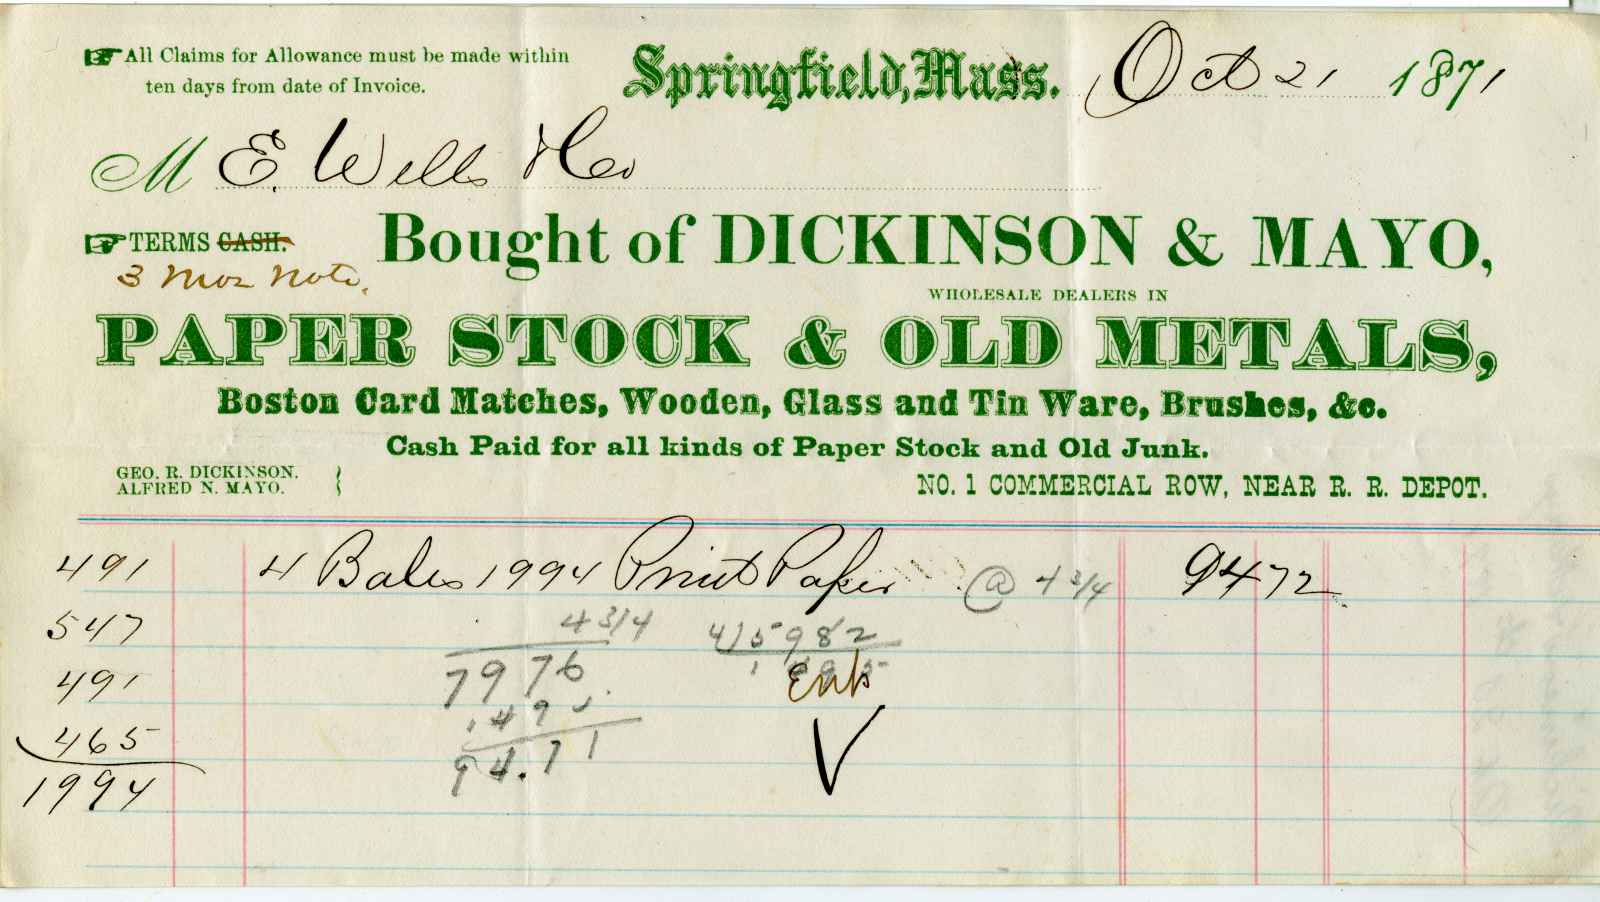 All Claims for Allowance must be made within
ten days from date of Invoice.
Springfield, Mass. Oct 21 1871
M E. Wells & Co
TERMS CASH.
3 Mos Note.
Bought of DICKINSON & MAYO,
WHOLESALE DEALERS IN
PAPER STOCK & OLD METALS,
Boston Card Matches, Wooden, Glass and Tin Ware, Brushes, &c.
Cash Paid for all kinds of Paper Stock and Old Junk.
GEO. R. DICKINSON.
ALFRED N. MAYO.
NO. 1 COMMERCIAL ROW, NEAR R. R. DEPOT.
491 4 Bales 1994 Print Paper @ 4 3/4 94 72
547 4 3/4 4)5982
491 7976 1495
Ent
465 149
94.71
1994